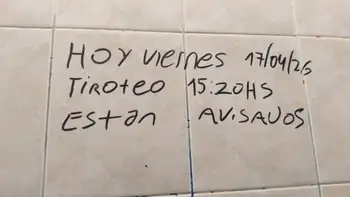 HOY VIERNES 17/04/26
TIROTEO 15:20HS
ESTAN AVISADOS